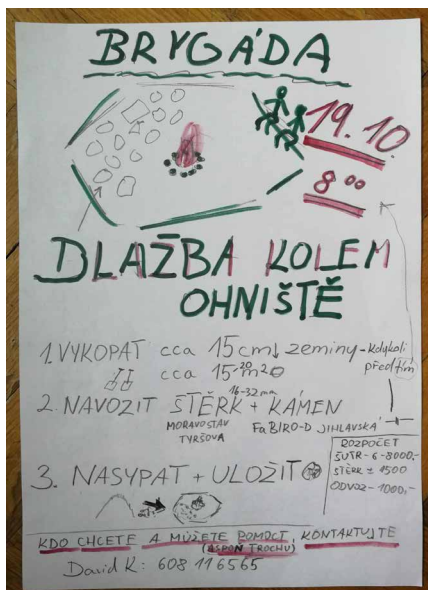 BRYGÁDA
19.10.
8⁰⁰
DLAŽBA KOLEM
OHNIŠTĚ
1. VYKOPAT cca 15cm↓ zeminy - kdykoli
předtím
cca 15-20m²
2. NAVOZIT ŠTĚRK 16-32mm + KÁMEN
MORAVOSTAV
TYRŠOVA
Fa BIRO-D JIHLAVSKÁ
3. NASYPAT + ULOŽIT
ROZPOČET
ŠUTR - 6-8000,-
ŠTĚRK ± 1500
ODVOZ - 1000,-
KDO CHCETE A MŮŽETE POMOCT, KONTAKTUJTE
(ASPOŇ TROCHU)
David K: 608 116565